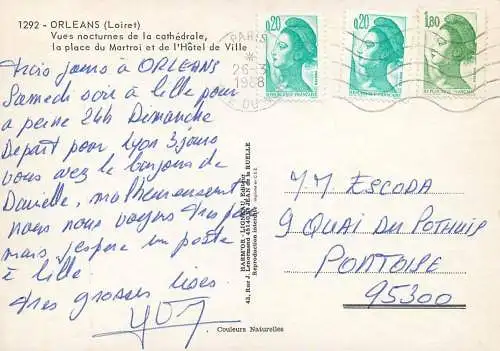 1292 - ORLEANS (Loiret)
Vues nocturnes de la cathédrale,
la place du Martroi et de l'Hôtel de Ville
Trois jours à ORLEANS
Samedi soir à Lille pour
a peine 24h Dimanche
Départ pour Lyon 3 jours
vous avez le bonjour de
Danielle, malheureusement
nous nous voyons très peu
mais j'espère un poste
à Lille
Très grosses bises.
0,20
0,20
1,80
PARIS
26-3
1988
REPUBLIQUE FRANÇAISE
HARFOR - LIGNEAU, Editeur
43, Rue J. Lenormand 45140 St JEAN de la RUELLE
Reproduction interdite
M M ESCODA
9 QUAI DU POTHUIS
PONTOISE
95300
Couleurs Naturelles